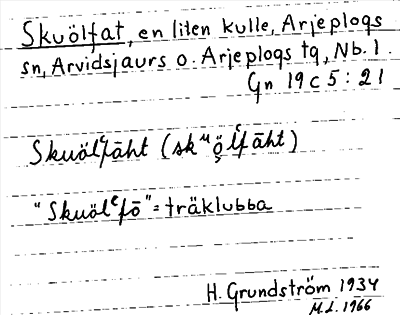 Skuölfat, en liten kulle, Arjeplogs
sn, Arvidsjaurs o. Arjeplogs tg, Nb. l.
Gn 19 c 5 : 21
Skuölˁfāht (skᵘö̧lˁfāht)
"Skuölᵉfō" = träklubba
H. Grundström 1934
M.L. 1966